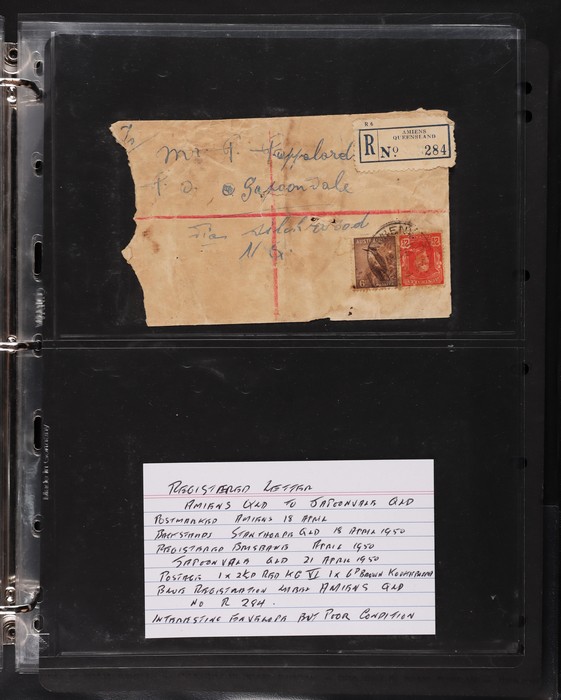 R 6
AMIENS
QUEENSLAND
R No 284
Mr
P. O.
Via
N. Q.
AMIENS
AUSTRALIA
REGISTERED LETTER
AMIENS QLD TO JAPOONVALE QLD
POSTMARKED AMIENS 18 APRIL
BACKSTAMPS STANTHORPE QLD 18 APRIL 1950
REGISTERED BRISBANE APRIL 1950
JAPOONVALE QLD 21 APRIL 1950
POSTAGE 1 x 2½D RED KG VI 1 x 6D BROWN KOOKABURRA
BLUE REGISTRATION LABEL AMIENS QLD
NO R 284.
INTERESTING ENVELOPE BUT POOR CONDITION
Made in Germany